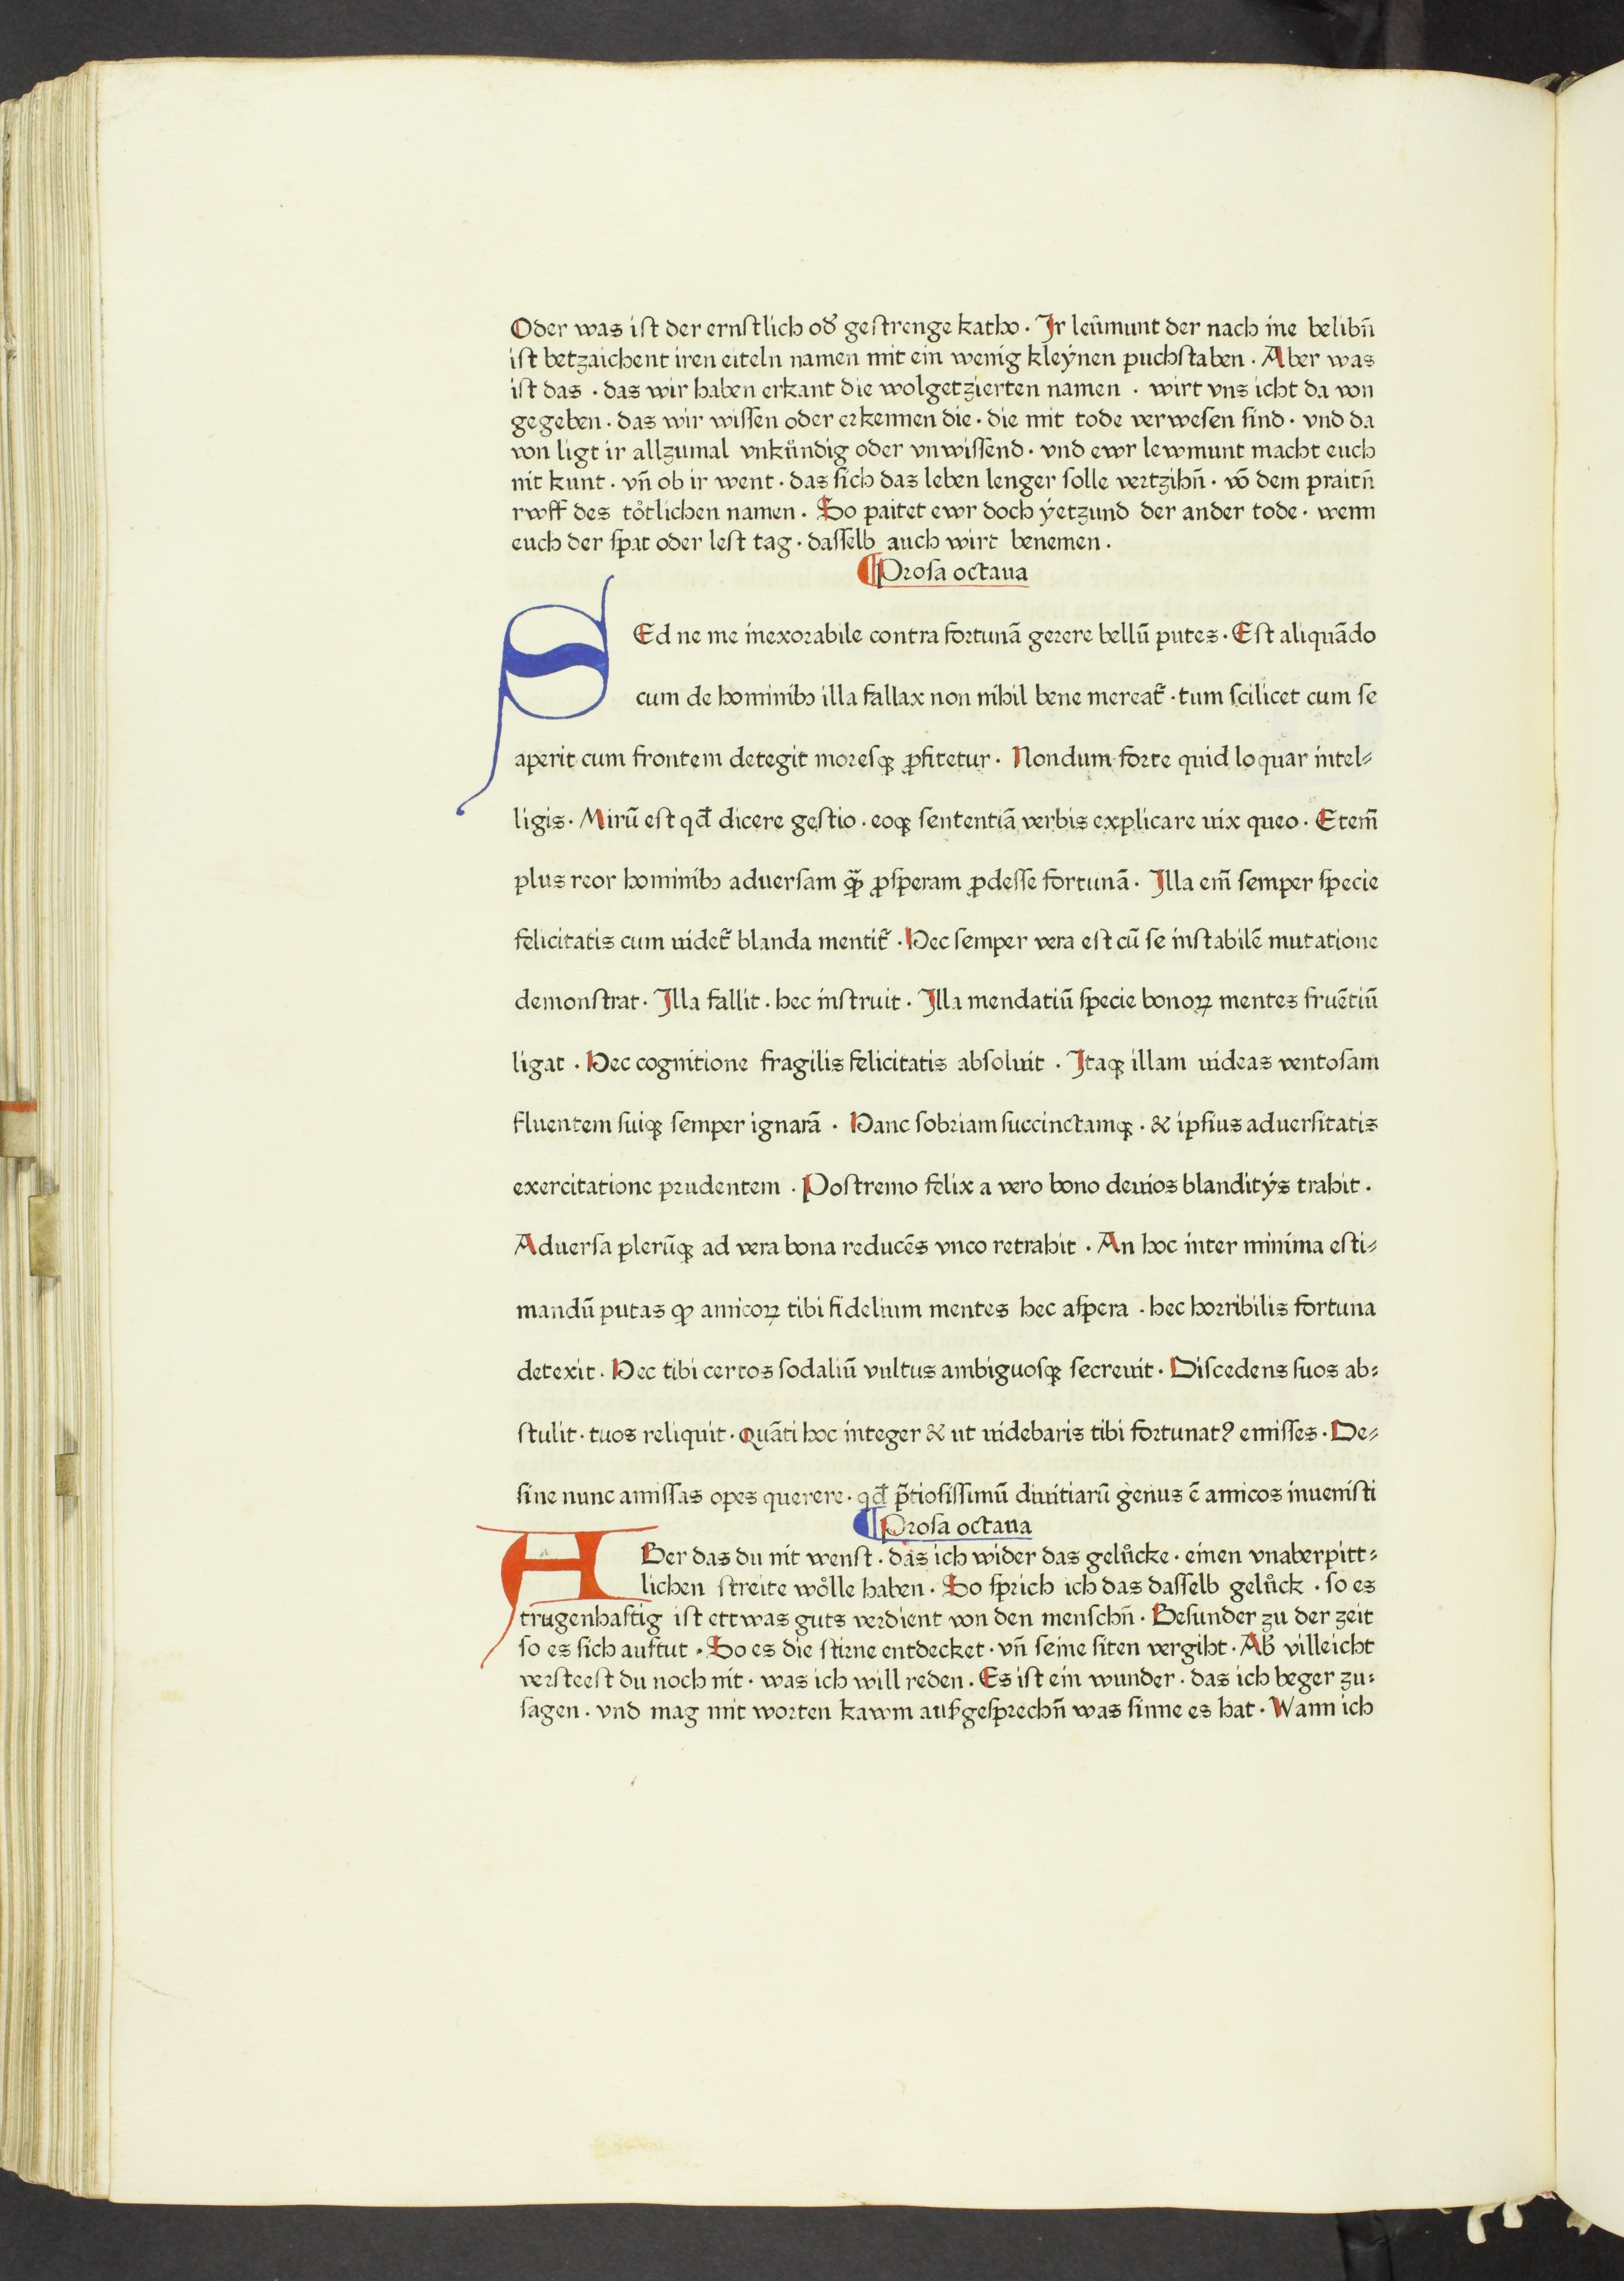 Oder was ist der ernstlich od̛ gestrenge katho · Jr leũmunt der nach ine belibñ
ist betzaichent iren eiteln namen mit ein wenig kleẏnen puchstaben · Aber was
ist das · das wir haben erkant die wolgetzierten namen · wirt vns icht da von
gegeben · das wir wissen oder erkennen die · die mit tode verwesen sind · vnd da
von ligt ir allzumal vnkuͦndig oder vnwissend · vnd ewr lewmunt macht euch
nit kunt · vñ ob ir went · das sich das leben lenger solle vertzihñ · võ dem praitñ
rwff des toͤtlichen namen · So paitet ewr doch ẏetzund der ander tode · wenn
euch der spat oder lest tag · dasselb auch wirt benemen ·
¶Prosa octaua
SEd ne me inexorabile contra fortunã gerere bellũ putes · Est aliquãdo
cum de hominibꝫ illa fallax non nihil bene mereat᷑ · tum scilicet cum se
aperit cum frontem detegit moresqꝫ ꝓfitetur · Nondum forte quid loquar intel⸗
ligis · Mirũ est qđ dicere gestio · eoqꝫ sententiã verbis explicare uix queo · Etem̃
plus reor hominibꝫ aduersam qꝫ̃ ꝓsperam ꝓdesse fortunã · Illa em̃ semper specie
felicitatis cum uidet᷑ blanda mentit᷑ · Hec semper vera est cũ se instabilẽ mutatione
demonstrat · Illa fallit · hec instruit · Illa mendatiũ specie bonoꝝ mentes fruẽtiũ
ligat · Hec cognitione fragilis felicitatis absoluit · Itaqꝫ illam uideas ventosam
fluentem suiqꝫ semper ignarã · Hanc sobriam succinctamqꝫ · & ipsius aduersitatis
exercitatione prudentem · Postremo felix a vero bono deuios blanditẏs trahit ·
Aduersa plerũqꝫ ad vera bona reducẽs vnco retrahit · An hoc inter minima esti⸗
mandũ putas ꝙ amicoꝝ tibi fidelium mentes hec aspera · hec horribilis fortuna
detexit · Hec tibi certos sodaliũ vultus ambiguosqꝫ secreuit · Discedens suos ab⸗
stulit · tuos reliquit · Quãti hoc integer & ut uidebaris tibi fortunatꝰ emisses · De⸗
sine nunc amissas opes querere · qđ p̃tiosissimũ diuitiarũ genus ẽ amicos inuenisti
¶Prosa octaua
ABer das du nit wenst · das ich wider das geluͦcke · einen vnaberpitt⸗
lichen streite woͤlle haben · So sprich ich das dasselb geluͦck · so es
trugenhaftig ist ettwas guts verdient von den menschñ · Besunder zu der zeit
so es sich auftut · So es die stirne entdecket · vñ seine siten vergiht · Ab̛ villeicht
versteest du noch nit · was ich will reden · Es ist ein wunder · das ich beger zu⸗
sagen · vnd mag mit worten kawm außgesprechñ was sinne es hat · Wann ich